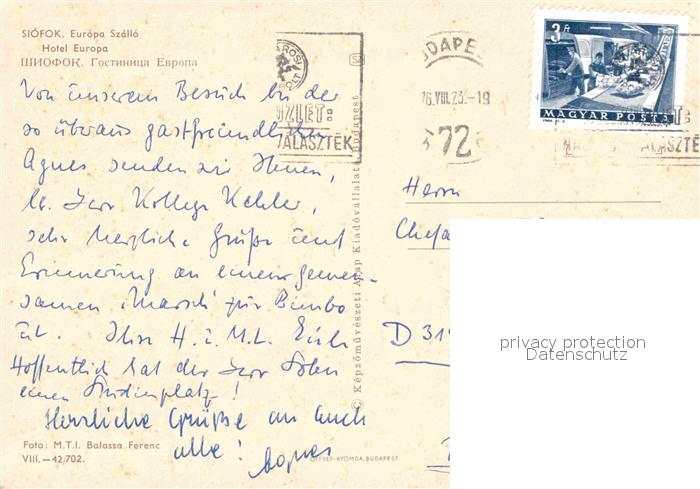 SIÓFOK. Európa Szálló
Hotel Europa
ШИОФОК. Гостиница Европа
Von unserem Besuch bei der
so überaus gastfreundlichen
Agnes senden wir Ihnen,
lb. Herr Kollege
sehr herzliche Grüße und
Erinnerung an einen gemein-
samen Marsch zur Bimbo
út. Ihre H. u. M.L.
Hoffentlich hat der Herr Sohn
einen Studienplatz!
Herzliche Grüße an Euch
alle! Agnes
Foto: M.T.I. Balassa Ferenc
VIII.—42/702.
OFFSET-NYOMDA, BUDAPEST
© Képzőművészeti Alap Kiadóvállalata, Budapest
SZ
ÜZLET:
VÁLASZTÉK
BUDAPEST
76.VIII.23.-19
72
3 Ft
MAGYAR POSTA
ÁLASZTÉ
Herrn
Chefa
D 31
privacy protection
Datenschutz